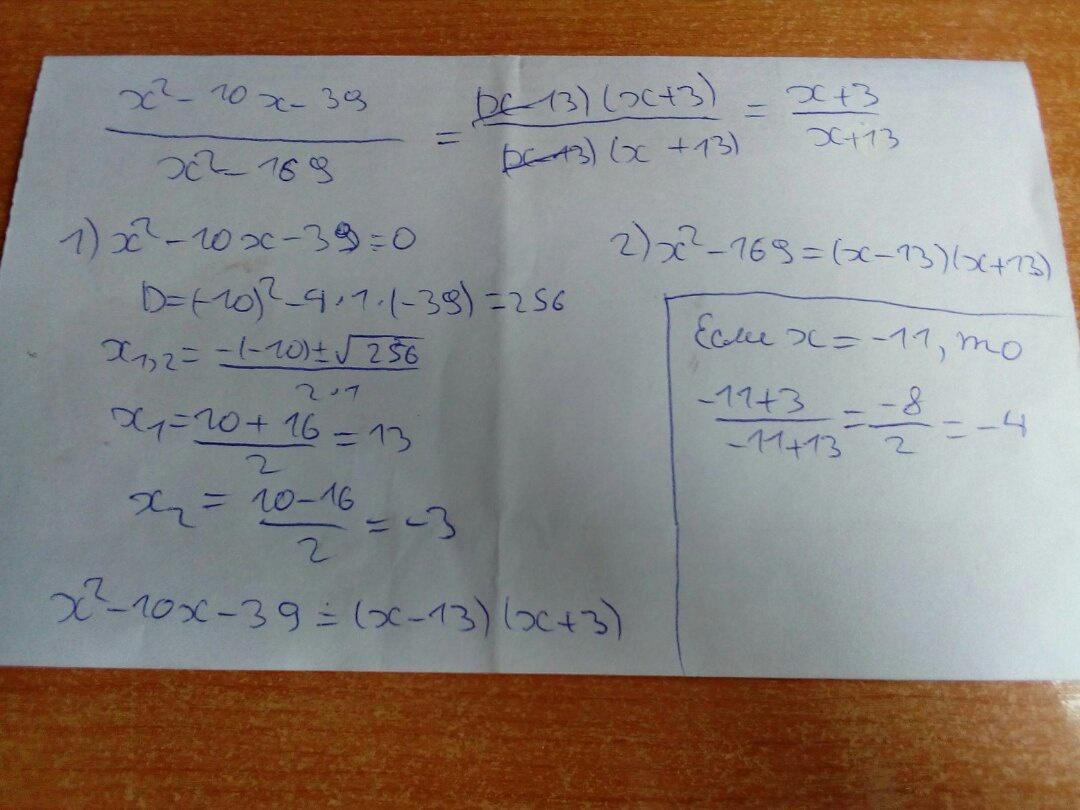 (x² - 10x - 39)/(x² - 169) = ((x-13)(x+3))/((x-13)(x+13)) = (x+3)/(x+13)
1) x² - 10x - 39 = 0
D = (-10)² - 4·1·(-39) = 256
x₁,₂ = (-(-10) ± √256)/(2·1)
x₁ = (10 + 16)/2 = 13
x₂ = (10 - 16)/2 = -3
x² - 10x - 39 = (x-13)(x+3)
2) x² - 169 = (x-13)(x+13)
Если x = -11, то
(-11+3)/(-11+13) = (-8)/2 = -4